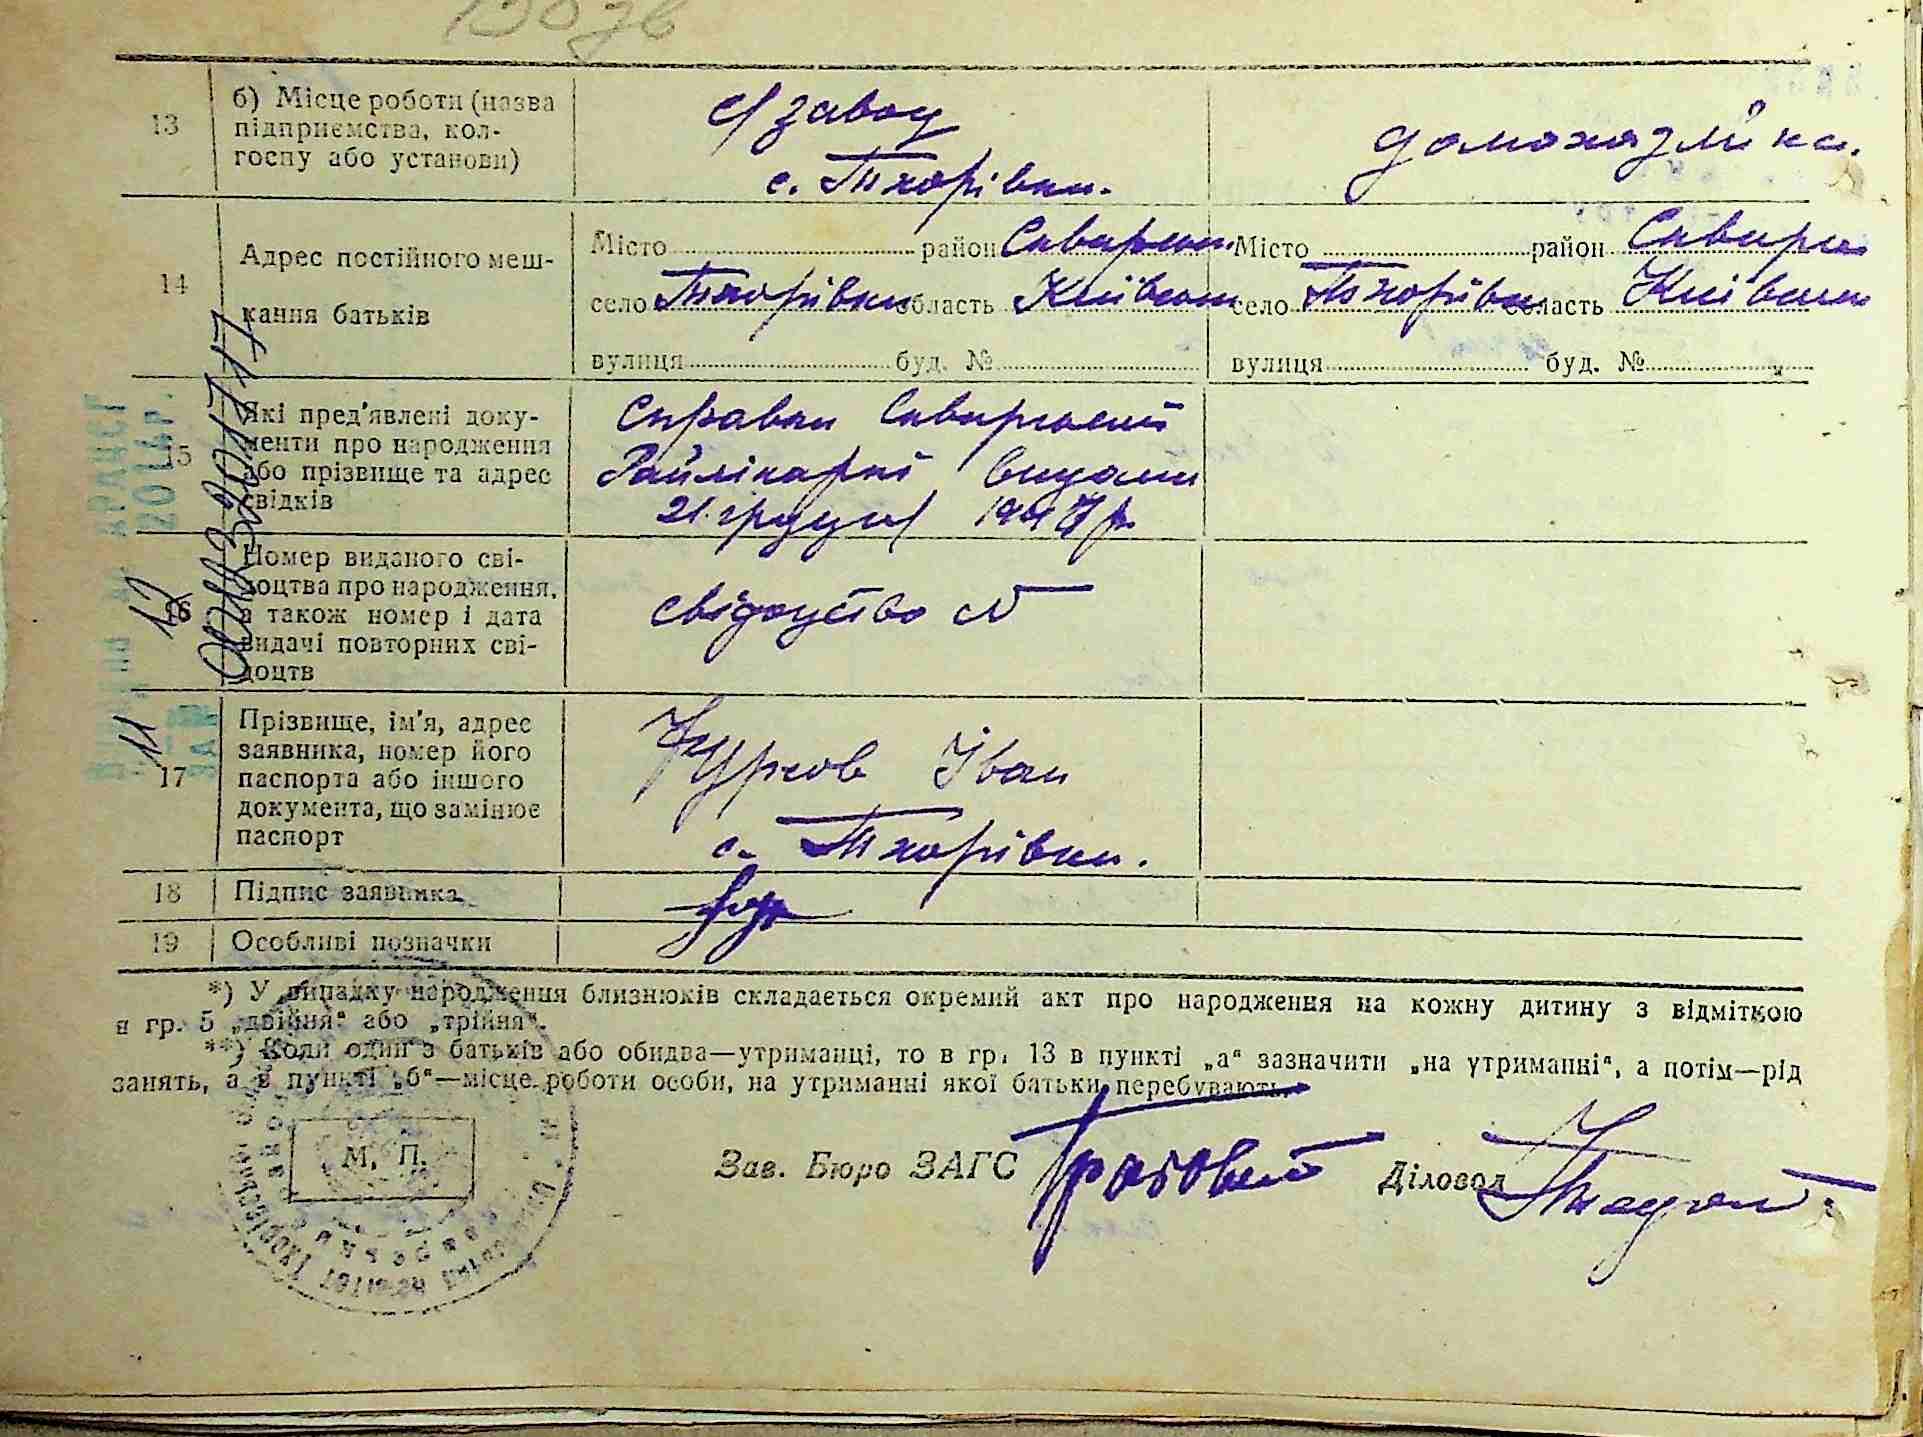 13
б) Місце роботи (назва
підприємства, кол-
госпу або установи)
с/завод
с. Тхорівка.
домохазяйка.
14
Адрес постійного меш-
кання батьків
Місто район Сквирськ
село Тхорівка область Київськ
вулиця буд. №
Місто район Сквирськ
село Тхорівка область Київськ
вулиця буд. №
15
Які пред'явлені доку-
менти про народження
або прізвище та адрес
свідків
Справка Сквирської
Райлікарні видана
21 грудня 1947 р.
16
Номер виданого сві-
доцтва про народження,
а також номер і дата
видачі повторних сві-
доцтв
свідоцтво №
17
Прізвище, ім'я, адрес
заявника, номер його
паспорта або іншого
документа, що замінює
паспорт
Іван
с. Тхорівка.
18
Підпис заявника
19
Особливі позначки
*) У випадку народження близнюків складається окремий акт про народження на кожну дитину з відміткою
в гр. 5 „двійня“ або „трійня“.
**) Коли один з батьків або обидва—утриманці, то в гр. 13 в пункті „а“ зазначити „на утриманні“, а потім—рід
занять, а в пункті „б“—місце роботи особи, на утриманні якої батьки перебувають.
М. П.
Зав. Бюро ЗАГС
Діловод